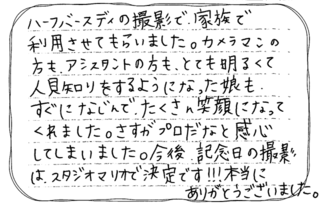 ハーフバースディの撮影で、家族で
利用させてもらいました。カメラマンの
方も、アシスタントの方も、とても明るくて
人見知りをするようになった娘も
すぐになじんで、たくさん笑顔になって
くれました。さすがプロだなと感心
してしまいました。今後、記念日の撮影
は、スタジオマリオで決定です!!!本当に
ありがとうございました。